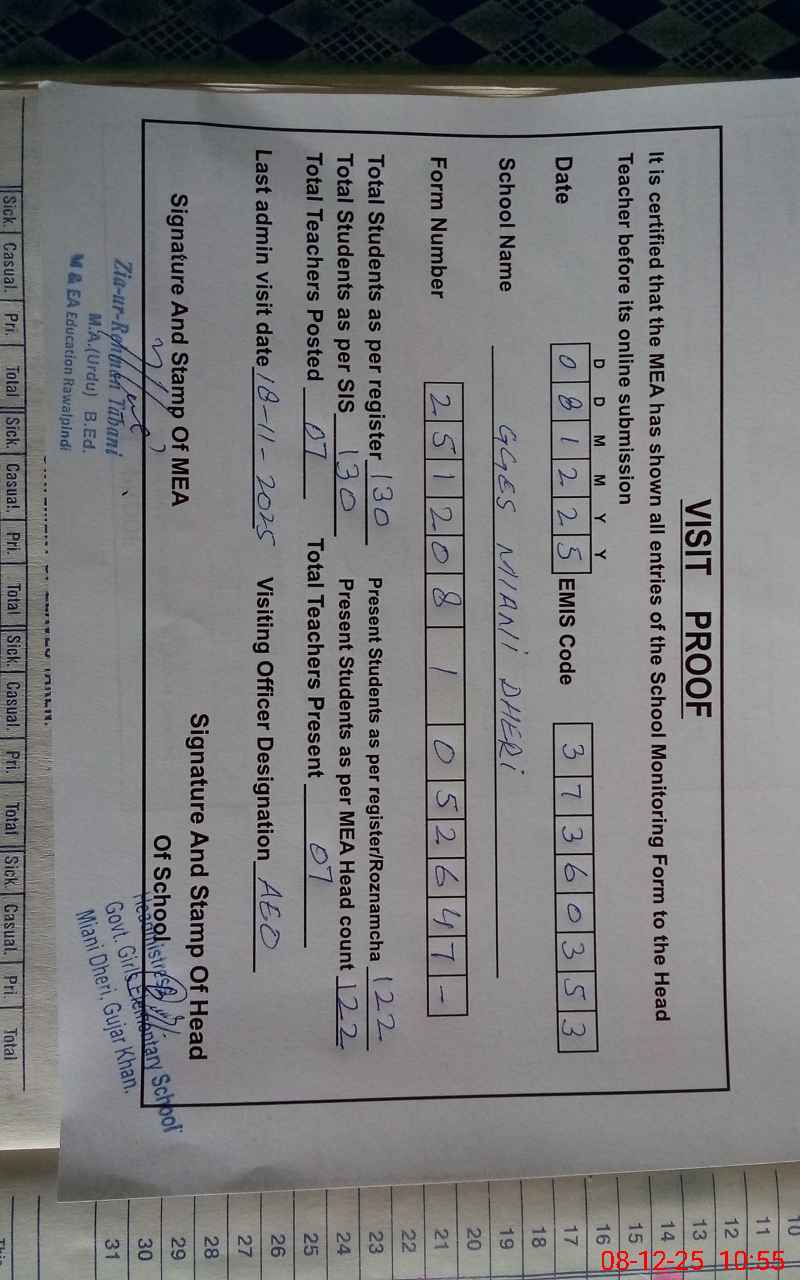 VISIT PROOF
It is certified that the MEA has shown all entries of the School Monitoring Form to the Head
Teacher before its online submission
D D M M Y Y
Date 0 8 1 2 2 5 EMIS Code 3 7 3 6 0 3 5 3
School Name GGES MIANI DHERI
Form Number 2 5 1 2 0 8 1 0 5 2 6 4 7 -
Total Students as per register 130 Present Students as per register/Roznamcha 122
Total Students as per SIS 130 Present Students as per MEA Head count 122
Total Teachers Posted 07 Total Teachers Present 07
Last admin visit date 18-11-2025 Visiting Officer Designation AEO
Signature And Stamp Of MEA
Signature And Stamp Of Head
Of School
Zia-ur-Rehman Tabani
M.A.(Urdu) B.Ed.
M & EA Education Rawalpindi
Headmistress
Govt. Girls Elementary School
Miani Dheri, Gujar Khan.
Sick. Casual. Pri. Total Sick. Casual. Pri. Total Sick. Casual. Pri. Total Sick. Casual. Pri. Total
10
11
12
13
14
15
16
17
18
19
20
21
22
23
24
25
26
27
28
29
30
31
08-12-25 10:55